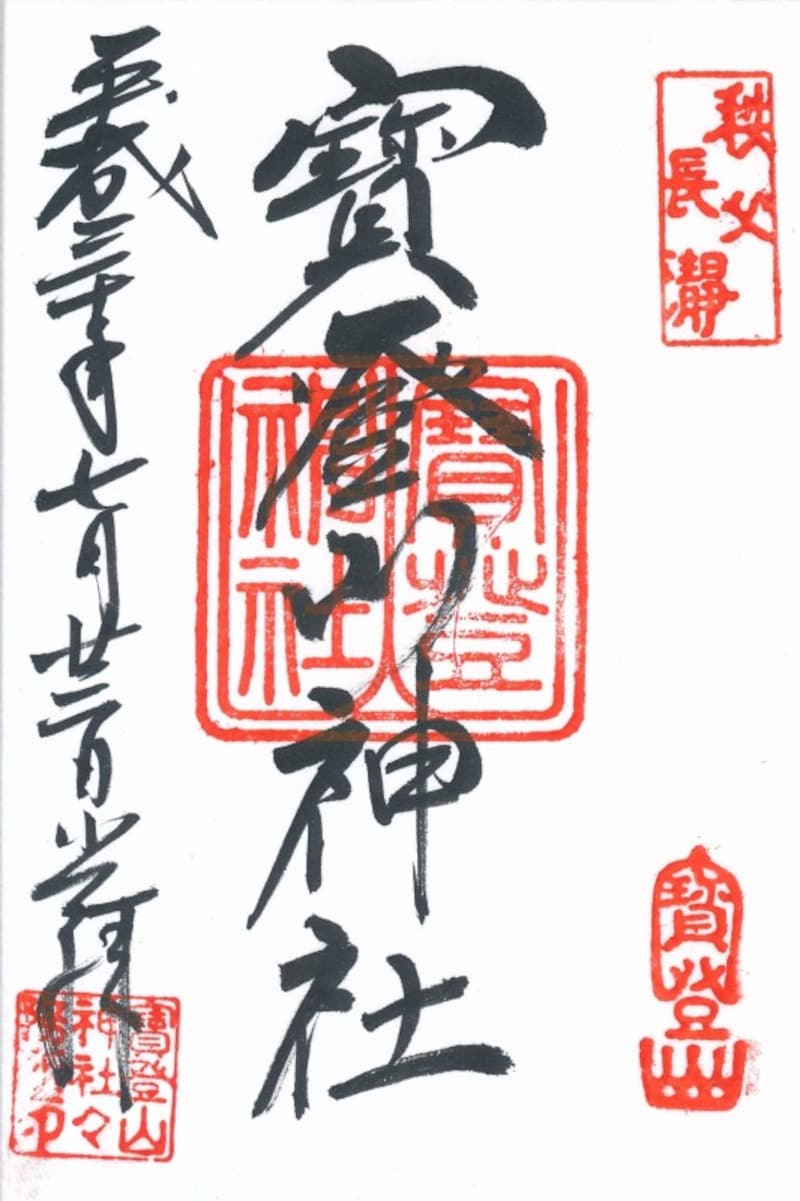 秩父
長瀞
寳登山
寳登山神社
寳登山
神社
平成三十年七月廿二日
寳登山
神社々
印